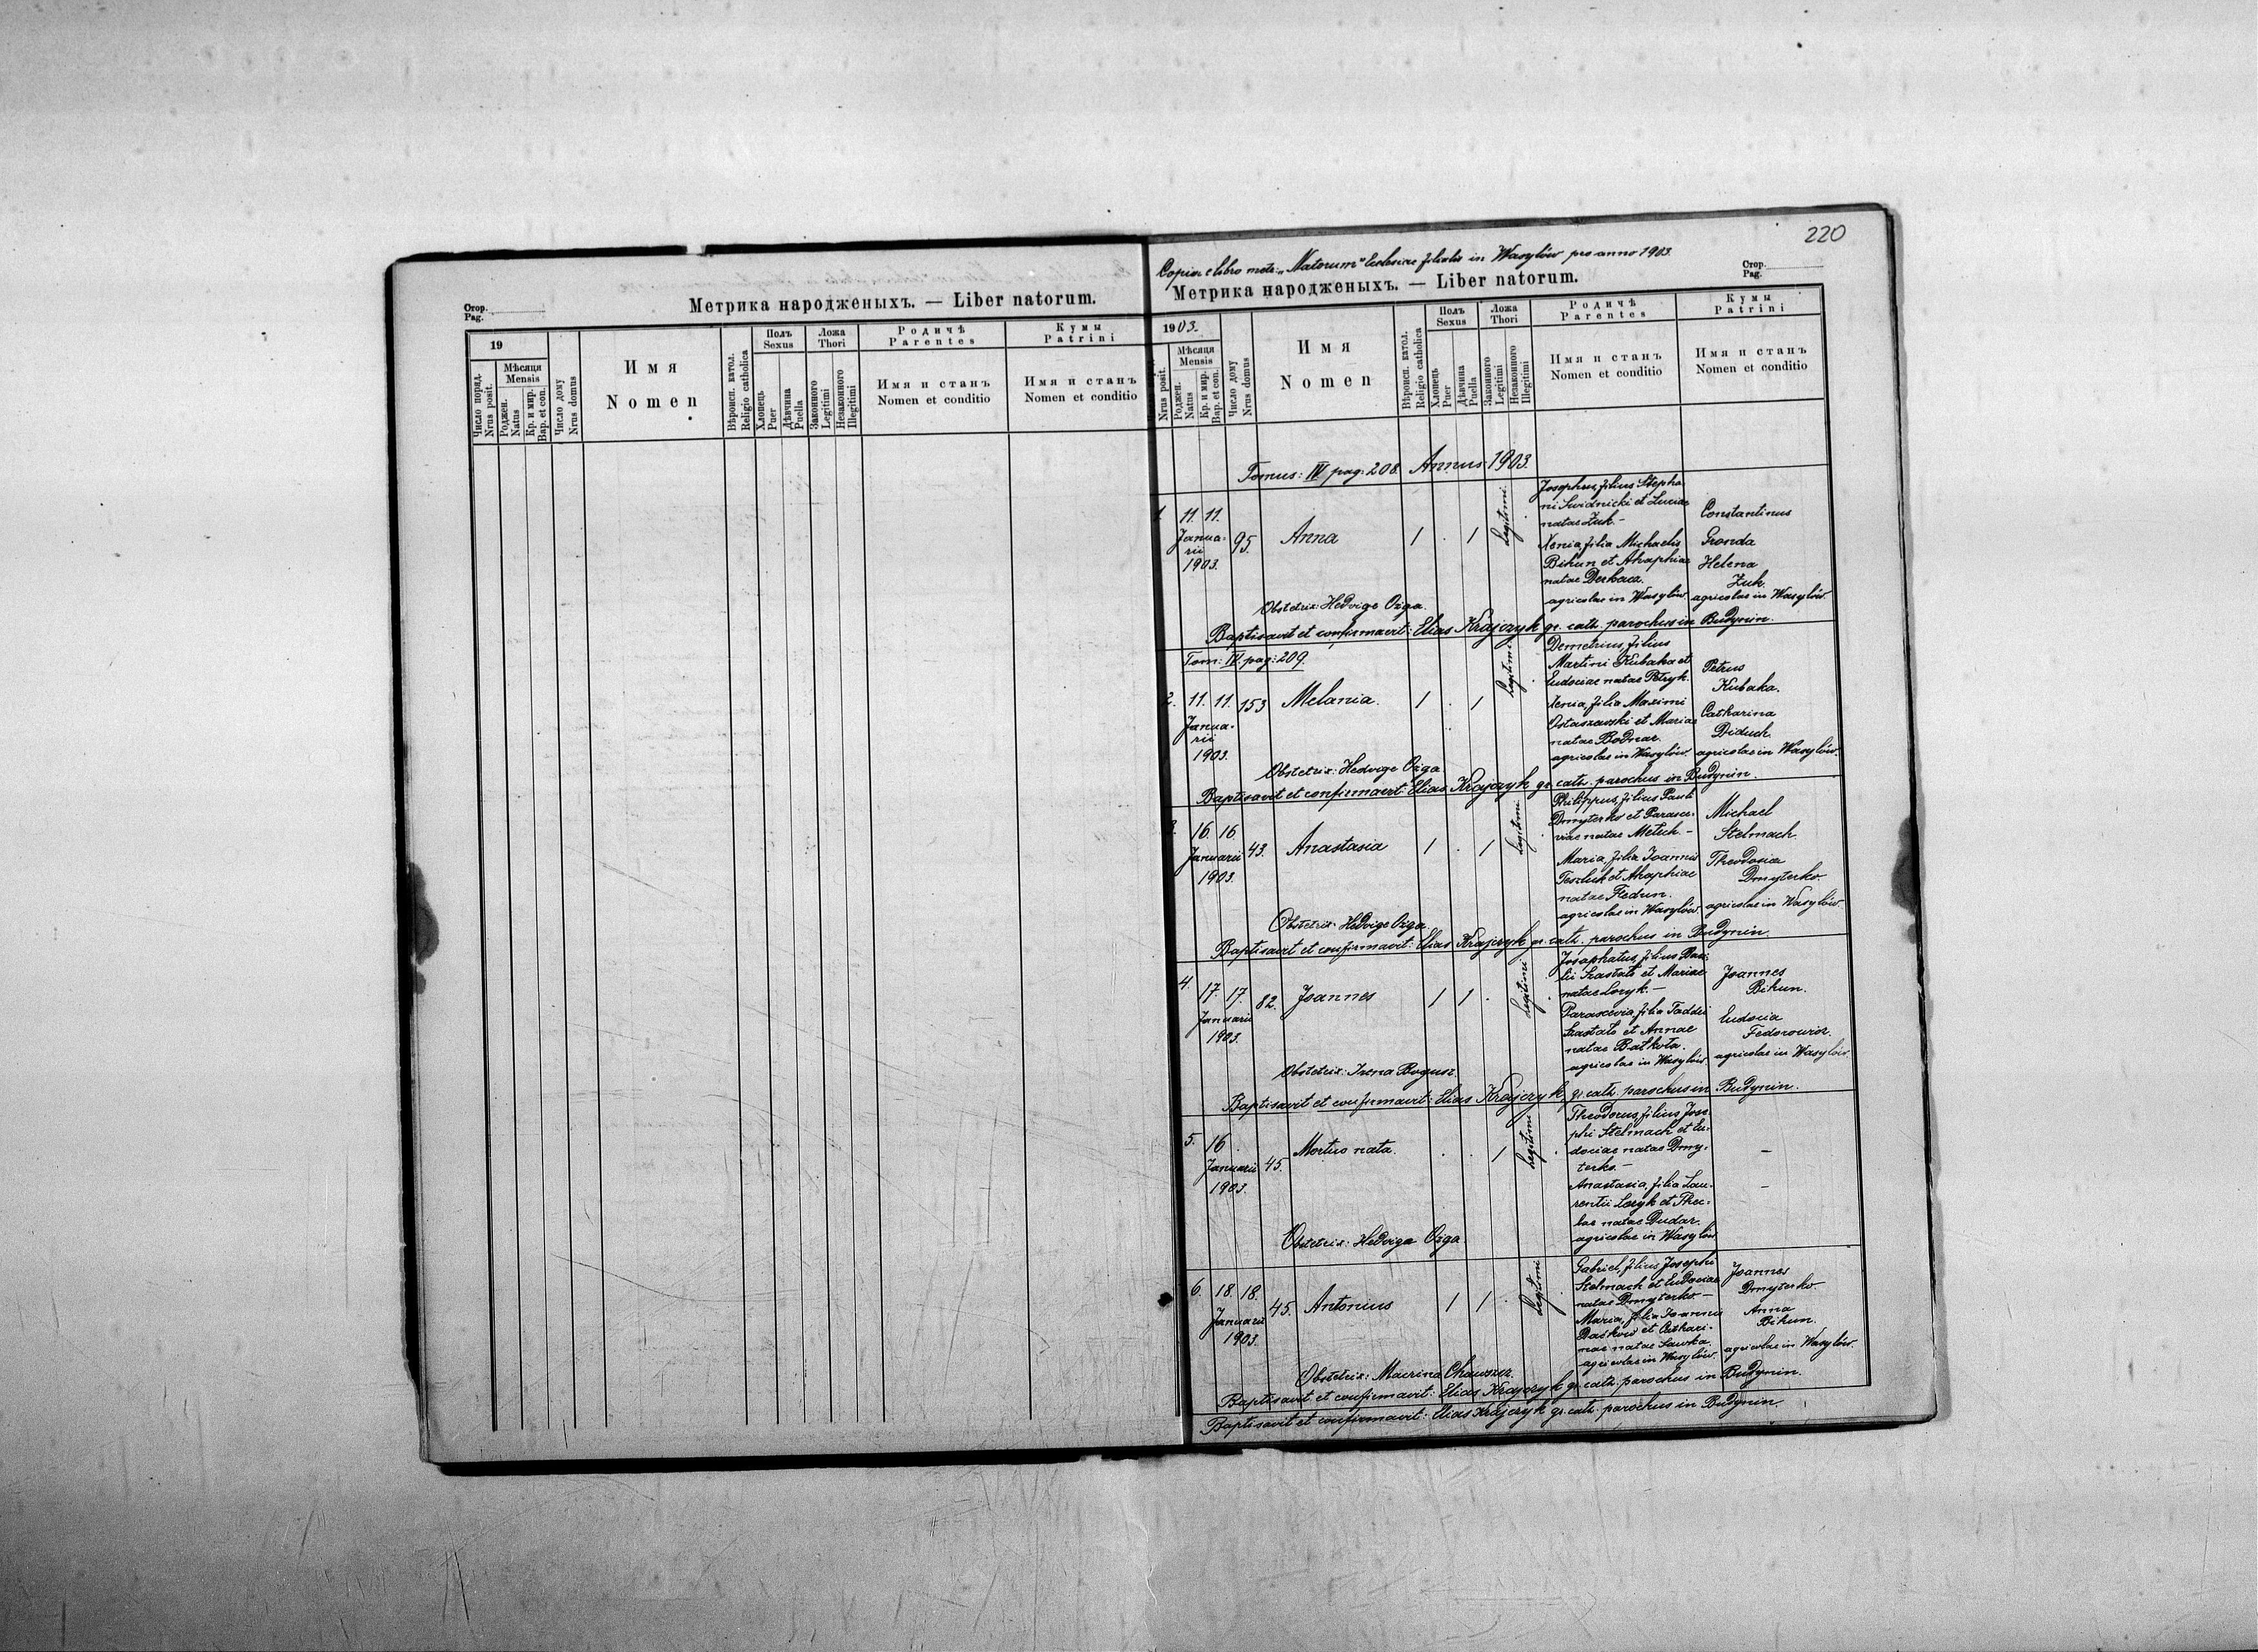 Стор.
Pag.
Метрика народженыхъ. — Liber natorum.
19
Число поряд.
Nrus posit.
Мѣсяця
Mensis
Роджен.
Natus
Кр. и мир.
Bap. et con.
Число дому
Nrus domus
Имя
Nomen
Вѣроисп. катол.
Religio catholica
Полъ
Sexus
Хлопець
Puer
Дѣвчина
Puella
Ложа
Thori
Законного
Legitimi
Незаконного
Illegitimi
Родичѣ
Parentes
Имя и станъ
Nomen et conditio
Кумы
Patrini
Имя и станъ
Nomen et conditio
220
Copia e libro metr: „Natorum" Ecclesiae filialis in Wasylów pro anno 1903.
Стор.
Pag.
Метрика народженыхъ. — Liber natorum.
1903.
Nrus posit.
Мѣсяця
Mensis
Роджен.
Natus
Кр. и мир.
Bap. et con.
Число дому
Nrus domus
Имя
Nomen
Вѣроисп. катол.
Religio catholica
Полъ
Sexus
Хлопець
Puer
Дѣвчина
Puella
Ложа
Thori
Законного
Legitimi
Незаконного
Illegitimi
Родичѣ
Parentes
Имя и станъ
Nomen et conditio
Кумы
Patrini
Имя и станъ
Nomen et conditio
Tomus: IV pag: 208. Annus 1903.
1. 11. 11.
Janua-
rii
1903.
95.
Anna
1 . 1
legitimi.
Josephus, filius Stepha-
ni Swidnicki et Luciae
natae Żuk. –
Xenia, filia Michaelis
Bihun et Ahaphiae
natae Derkacz.
agricolae in Wasylów
Constantinus
Gronda
Helena
Żuk.
agricolae in Wasylów.
Obstetrix: Hedvige Ożga.
Baptisavit et confirmavit: Elias Krajczyk gr. cath. parochus in Budynin.
Tom: IV. pag: 209.
2. 11. 11.
Janua-
rii
1903.
153
Melania.
1 . 1
legitimi
Demetrius, filius
Martini Kubaka et
Eudociae natae Petryk.
Xenia, filia Maximi
Ostaszewski et Mariae
natae Bodnar.
agricolae in Wasylów.
Petrus
Kubaka.
Catharina
Diduch.
agricolae in Wasylów.
Obstetrix: Hedvige Ożga
Baptisavit et confirmavit: Elias Krajczyk gr. cath. parochus in Budynin.
3. 16 16
Januarii
1903.
43.
Anastasia
1 . 1
legitimi
Philippus, filius Pauli
Dmyterko et Parasce-
viae natae Melech. –
Maria, filia Joannis
Teszluk et Ahaphiae
natae Fedun.
agricolae in Wasylów.
Michael
Stelmach
Theodosia
Dmyterko
agricolae in Wasylów.
Obstetrix: Hedvige Ożga
Baptisavit et confirmavit: Elias Krajczyk gr. cath. parochus in Budynin.
4. 17. 17.
Januarii
1903.
82.
Joannes
1 1 .
legitimi
Josaphatus, filius Basi-
lii Szastało et Mariae
natae Loryk. –
Parascevia, filia Taddei
Szastało et Annae
natae Bałkota.
agricolae in Wasylów
Joannes
Bihun.
Eudocia
Fedorowicz.
agricolae in Wasylów.
Obstetrix: Irena Bogusz.
Baptisavit et confirmavit: Elias Krajczyk gr. cath. parochus in Budynin.
5. 16
Januarii
1903.
45.
Mortuo nata.
. . 1
legitimi
Theodorus, filius Jose-
phi Stelmach et Eu-
dociae natae Dmy-
terko. –
Anastasia, filia Lau-
rentii Loryk et Thec-
lae natae Dudar.
agricolae in Wasylów
–
–
Obstetrix: Hedviga Ożga
6. 18. 18.
Januarii
1903.
45.
Antonius
1 1 .
legitimi
Gabriel, filius Josephi
Stelmach et Eudociae
natae Dmyterko. –
Maria, filia Joannis
et Cathari-
nae natae Sawka.
agricolae in Wasylów.
Joannes
Dmyterko.
Anna
Bihun.
agricolae in Wasylów.
Obstetrix: Macrina
Baptisavit et confirmavit: Elias Krajczyk gr. cath. parochus in Budynin.
Baptisavit et confirmavit: Elias Krajczyk gr. cath. parochus in Budynin.